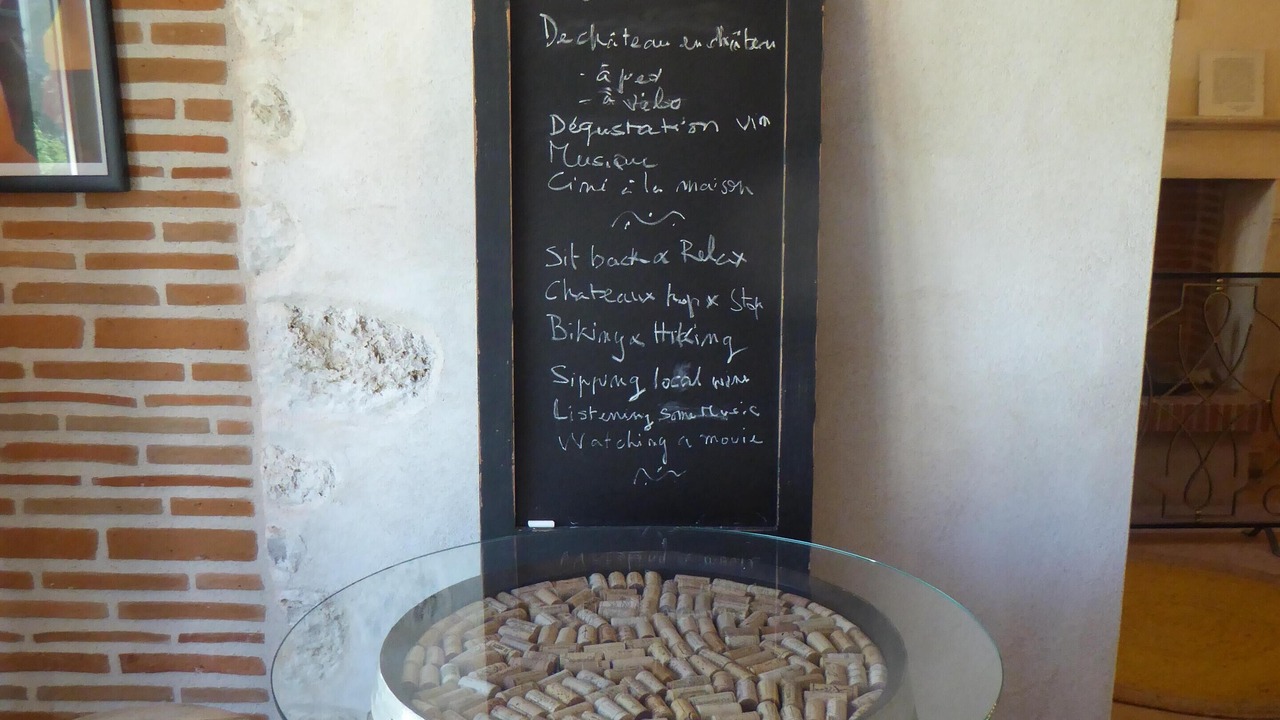 De château en château
- à pied
- à vélo
Dégustation vin
Musique
Ciné à la maison
Sit back & Relax
Chateaux hop & Stop
Biking & Hiking
Sipping local wine
Listening some Music
Watching a movie